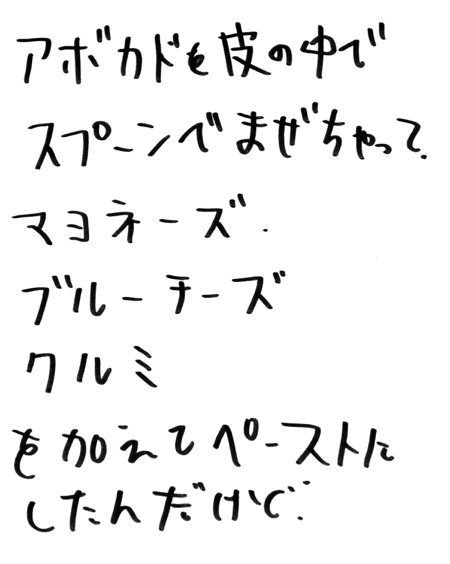 アボカドを皮の中で
スプーンでまぜちゃって、
マヨネーズ.
ブルーチーズ
クルミ
を加えてペーストに
したんだけど.